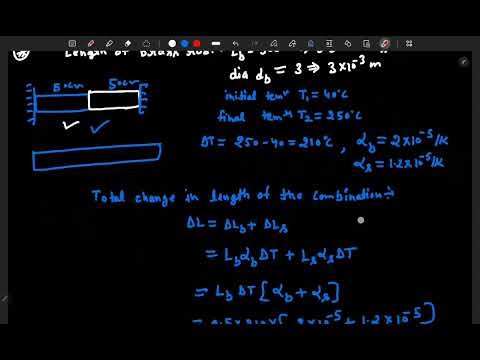 Length of brass rod
dia d_b = 3 ⇒ 3×10⁻³ m
50cm 50cm
initial temʳ T₁ = 40°C
final temʳ T₂ = 250°C
ΔT = 250-40 = 210°C , α_b = 2×10⁻⁵/K
α_s = 1.2×10⁻⁵/K
Total change in length of the combination:-
ΔL = ΔL_b + ΔL_s
= L_b α_b ΔT + L_s α_s ΔT
= L_b ΔT [α_b + α_s]
= 0.5×210×[2×10⁻⁵ + 1.2×10⁻⁵]